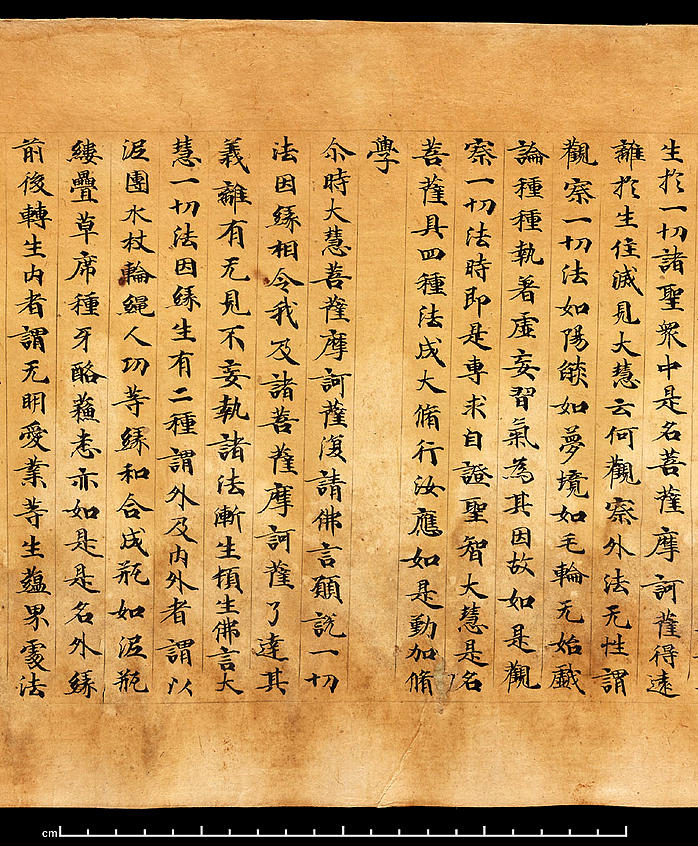 生於一切諸聖衆中是名菩薩摩訶薩得遠
離於生住滅見大慧云何觀察外法无性謂
觀察一切法如陽焰如夢境如毛輪无始戲
論種種執著虛妄習氣為其因故如是觀
察一切法時即是專求自證聖智大慧是名
菩薩具四種法成大脩行汝應如是勤加脩
學
尒時大慧菩薩摩訶薩復請佛言願說一切
法因緣相令我及諸菩薩摩訶薩了達其
義離有无見不妄執諸法漸生頓生佛言大
慧一切法因緣生有二種謂外及內外者謂以
泥團水杖輪繩人功等緣和合成瓶如泥瓶
縷疊草席種牙酪蘓悉亦如是是名外緣
前後轉生內者謂无明愛業等生蘊界處法
cm